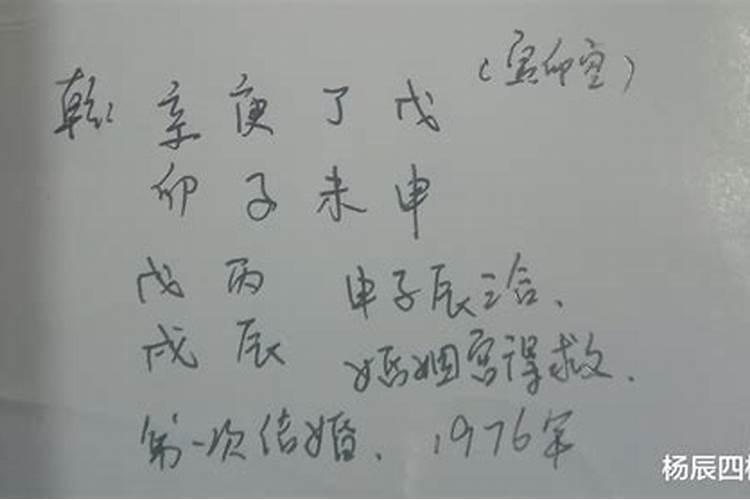 乾: 辛 庚 丁 戊 (寅卯空)
卯 子 未 申
戊 丙 申子辰三合、
戌 辰 婚姻宫得救.
第一次结婚、1976年
杨辰四柱